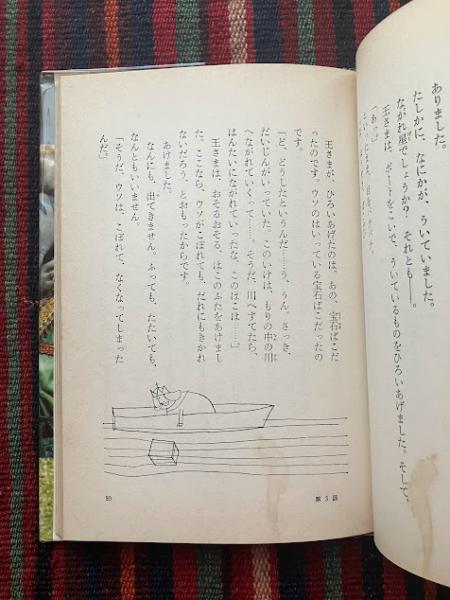 ありました。
たしかに、なにかが、ういていました。
ながれ星でしょうか？　それとも――。
王さまは、ボートをこいで、ういているものをひろいあげました。そして、
「あっ。」
王さまが、ひろいあげたのは、あの、宝石ばこだ
ったのです。ウソのはいっている宝石ばこだったの
です。
「ど、どうしたというんだ……う、うん。さっき、
だいじんがいっていた。このいけは、もりの中の川
へながれていくって……。そうだ、川へすてたら、
はんたいにながれていったな、このはこは……。」
王さまは、おそるおそる、はこのふたをあけまし
た。ここなら、ウソがこぼれても、だれにもきかれ
ないだろう、とおもったからです。
あけました。
なんにも、出てきません。ふっても、たたいても、
なんともいいません。
「そうだ、ウソは、こぼれて、なくなってしまった
んだ。」
第3話
80